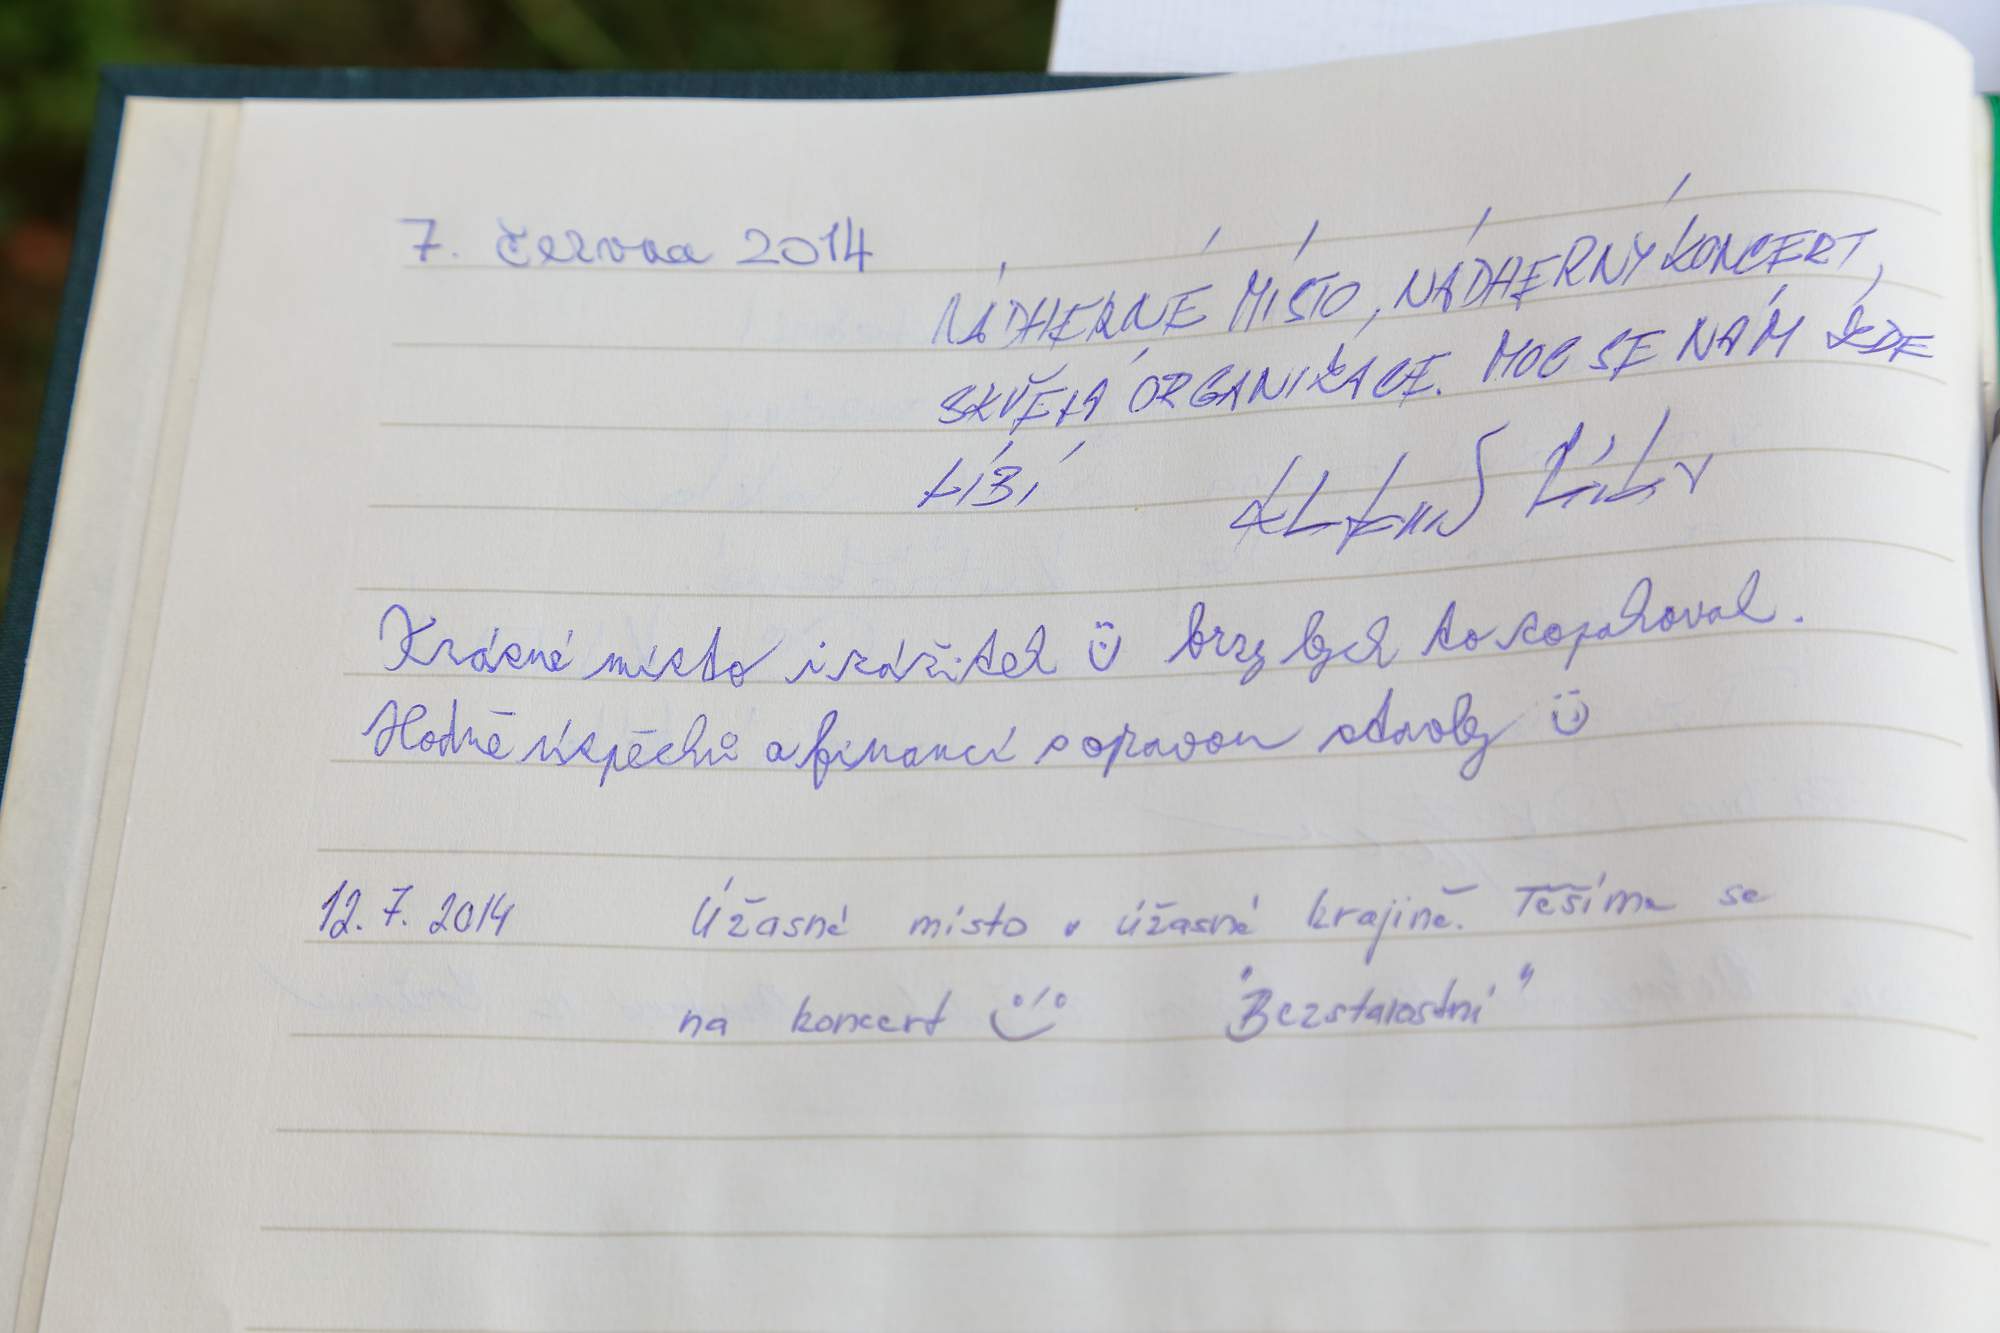 7. června 2014
NÁDHERNÉ MÍSTO, NÁDHERNÝ KONCERT,
SKVĚLÁ ORGANIZACE. MOC SE NÁM ZDE
LÍBÍ
Krásné místo i zážitek ☺ brzy bych to zopakoval.
Hodně úspěchů a financí s opravou stavby ☺
12. 7. 2014 Úžasné místo v úžasné krajině. Těšíme se
na koncert ☺ "Bezstarostní"